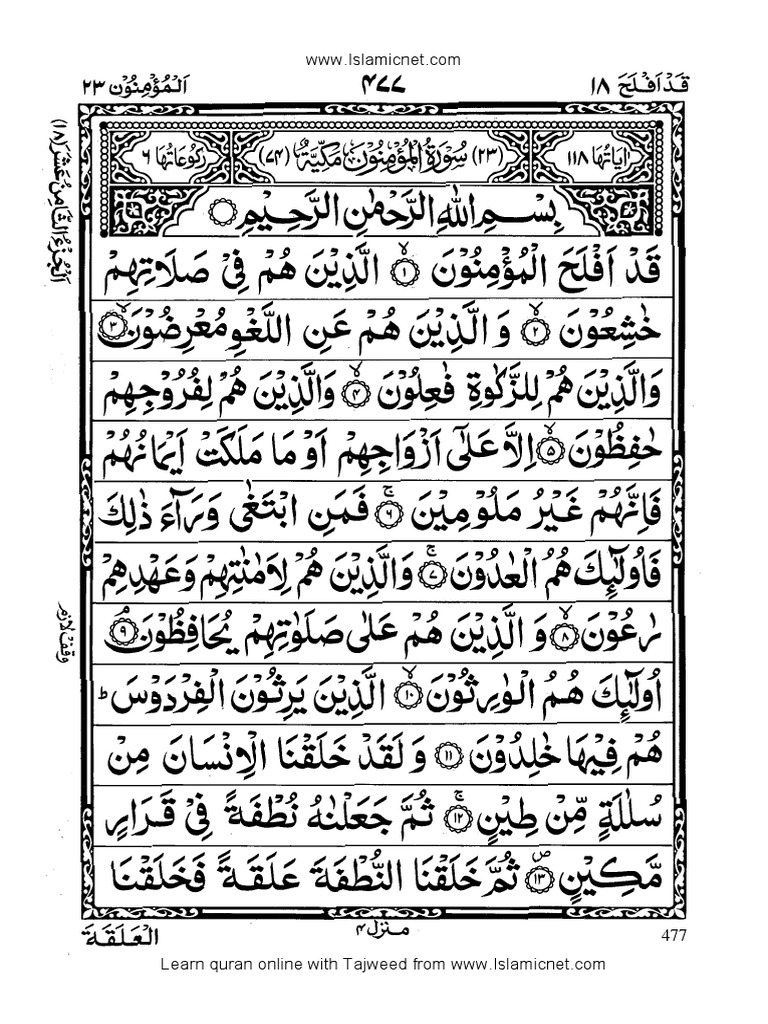 www.Islamicnet.com
قَدْ اَفْلَحَ ١٨
٤٧٧
اَلْمُؤْمِنُوْنَ ٢٣
اٰيَاتُهَا ١١٨
(٢٣) سُوْرَةُ الْمُؤْمِنُوْنَ مَكِّيَّةٌ (٧٤)
رُكُوْعَاتُهَا ٦
بِسْمِ اللّٰهِ الرَّحْمٰنِ الرَّحِيْمِ
قَدْ اَفْلَحَ الْمُؤْمِنُوْنَ ۙ﴿١﴾ الَّذِيْنَ هُمْ فِيْ صَلَاتِهِمْ
خٰشِعُوْنَ ۙ﴿٢﴾ وَالَّذِيْنَ هُمْ عَنِ اللَّغْوِ مُعْرِضُوْنَ ۙ﴿٣﴾
وَالَّذِيْنَ هُمْ لِلزَّكٰوةِ فٰعِلُوْنَ ۙ﴿٤﴾ وَالَّذِيْنَ هُمْ لِفُرُوْجِهِمْ
حٰفِظُوْنَ ۙ﴿٥﴾ اِلَّا عَلٰٓى اَزْوَاجِهِمْ اَوْ مَا مَلَكَتْ اَيْمَانُهُمْ
فَاِنَّهُمْ غَيْرُ مَلُوْمِيْنَ ۚ﴿٦﴾ فَمَنِ ابْتَغٰى وَرَآءَ ذٰلِكَ
فَاُولٰٓئِكَ هُمُ الْعٰدُوْنَ ۚ﴿٧﴾ وَالَّذِيْنَ هُمْ لِاَمٰنٰتِهِمْ وَعَهْدِهِمْ
رٰعُوْنَ ۙ﴿٨﴾ وَالَّذِيْنَ هُمْ عَلٰى صَلَوٰتِهِمْ يُحَافِظُوْنَ ۘ﴿٩﴾
اُولٰٓئِكَ هُمُ الْوٰرِثُوْنَ ۙ﴿١٠﴾ الَّذِيْنَ يَرِثُوْنَ الْفِرْدَوْسَ ؕ
هُمْ فِيْهَا خٰلِدُوْنَ ﴿١١﴾ وَلَقَدْ خَلَقْنَا الْاِنْسَانَ مِنْ
سُلٰلَةٍ مِّنْ طِيْنٍ ۚ﴿١٢﴾ ثُمَّ جَعَلْنٰهُ نُطْفَةً فِيْ قَرَارٍ
مَّكِيْنٍ ۪﴿١٣﴾ ثُمَّ خَلَقْنَا النُّطْفَةَ عَلَقَةً فَخَلَقْنَا
اَلْجُزْءُ الثَّامِنُ عَشَرَ (١٨)
وقف لازم
منزل ٤
العلقة
477
Learn quran online with Tajweed from www.Islamicnet.com